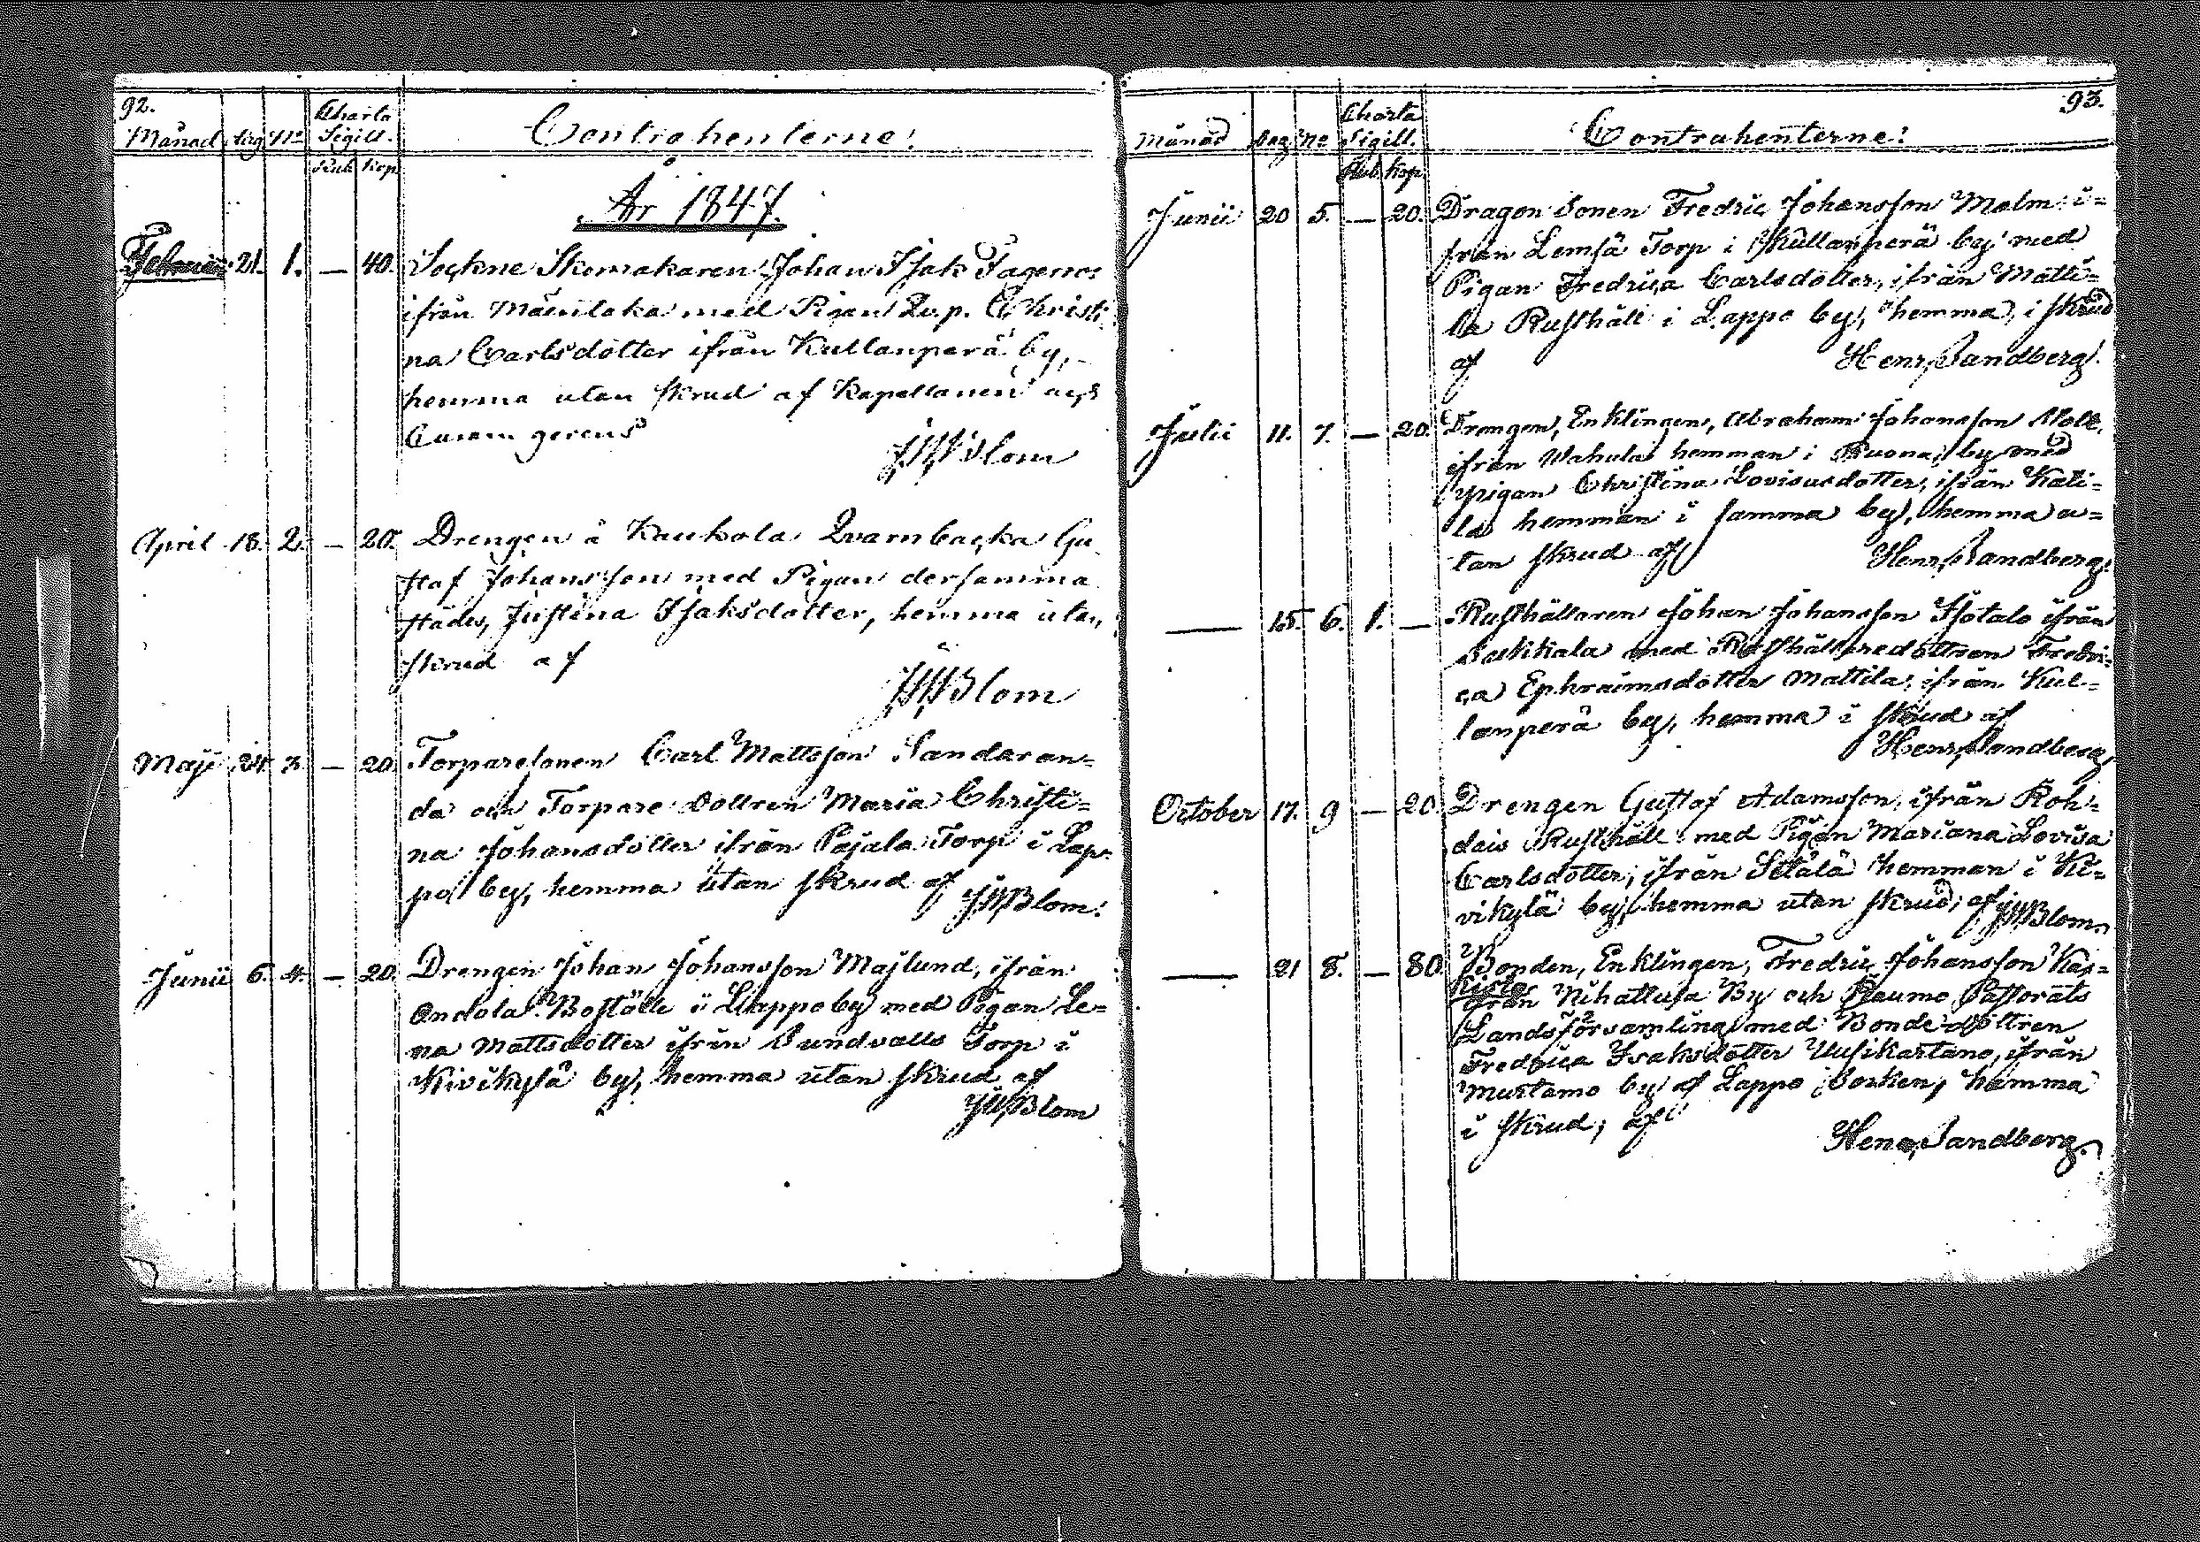 92.
Månad dag No Charta Sigill. Contrahenterne:
Rub kop
År 1847.
Februarii 21. 1. — 40. Sockne Skomakaren Johan Isak Fagerros
ifrån Mannila med Pigan Qv.p. Christi-
na Carlsdotter ifrån Kullanperä by,
hemma utan skrud af Kapellanen och
Curam gerens
JWBlom
April 18. 2. — 20. Drengen å Kaukola Qvarnbacka Gu
staf Johansson med Pigan dersamma
städes, Justina Isaksdotter, hemma utan
skrud af
JWBlom
Maji 24. 3. — 20. Torparesonen Carl Mattsson Sandaran-
da och Torpare dottren Maria Christi-
na Johansdotter ifrån Pajala Torp i Lap-
po by, hemma utan skrud af
JWBlom.
Junii 6. 4. — 20. Drengen Johan Johansson Majlund, ifrån
Andola Boställe i Lappo by med Pigan Le-
na Mattsdotter ifrån Sundvalls Torp i
Kivikylä by, hemma utan skrud af
JWBlom
93.
Månad Dag No Charta Sigill. Contrahenterne:
Rub. Kop.
Junii 20 5. — 20. Dragon Sonen Fredric Johansson Malm i-
från Lemsä Torp i Kullanperä by med
Pigan Fredrica Carlsdotter, ifrån Matti-
la Rusthåll i Lappo by, hemma, i skrud
af Henr. Sandberg.
Julii 11. 7. — 20. Drengen, Enklingen, Abraham Johansson
ifrån Wahula hemman i Ruona by med
pigan Christina Lovisasdotter, ifrån Kati-
la hemman i samma by, hemma u-
tan skrud af Henr. Sandberg.
— 15. 6. 1. — Rusthållaren Johan Johansson Isotalo ifrån
Sukkala med Rusthållaredottren Fredri-
ca Ephraimsdotter Mattila, ifrån Kul-
lanperä by, hemma i skrud af
Henr. Sandberg,
October 17. 9 — 20. Drengen Gustaf Adamsson, ifrån Roh-
dais Rusthåll med Pigan Mariana Lovisa
Carlsdotter, ifrån Setälä hemman i Ki-
vikylä by, hemma utan skrud, af JWBlom.
— 21 8. — 80. Bonden, Enklingen, Fredric Johansson Kas-
kisto
ifrån Nihattula By och Raumo Pastorats
Landsförsamling med Bonde dottren
Fredrica Isaksdotter Uusikartano, ifrån
Murtamo by af Lappo Socken, hemma
i skrud, af
Henr. Sandberg.